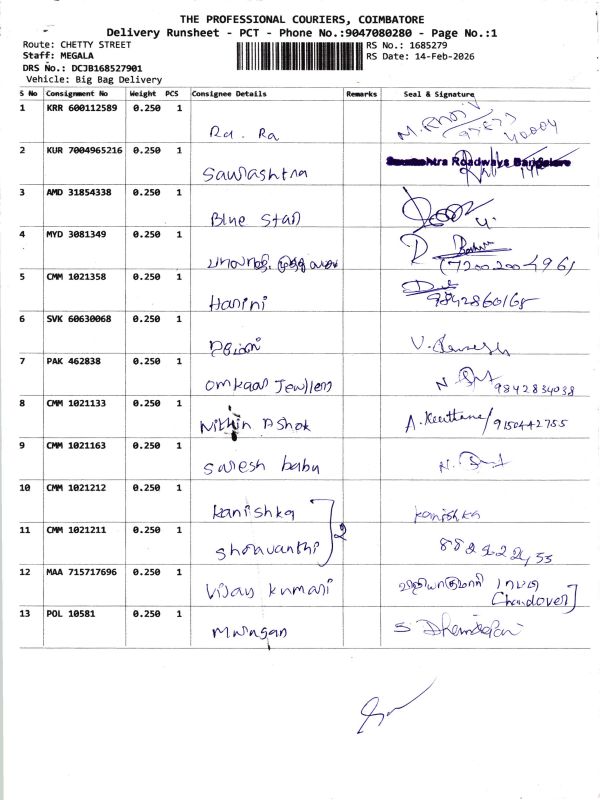 THE PROFESSIONAL COURIERS, COIMBATORE
Delivery Runsheet - PCT - Phone No.:9047080280 - Page No.:1
Route: CHETTY STREET
RS No.: 1685279
Staff: MEGALA
RS Date: 14-Feb-2026
DRS No.: DCJB168527901
Vehicle: Big Bag Delivery
S No Consignment No Weight PCS Consignee Details Remarks Seal & Signature
1 KRR 600112589 0.250 1
Ra. Ra
2 KUR 7004965216 0.250 1
Roadways Bangalore
Saurashtra
3 AMD 31854338 0.250 1
Blue Star
4 MYD 3081349 0.250 1
5 CMM 1021358 0.250 1
Harini 9842860165
6 SVK 60630068 0.250 1
7 PAK 462838 0.250 1
Omkaar Jewllers 9842834038
8 CMM 1021133 0.250 1
Nithin Ashok A. Keerthana/9150442755
9 CMM 1021163 0.250 1
Suresh babu
10 CMM 1021212 0.250 1
Kanishka 2 Kanishka
11 CMM 1021211 0.250 1
Sholavanthi
12 MAA 715717696 0.250 1
Vijay kumari
13 POL 10581 0.250 1
Murugan